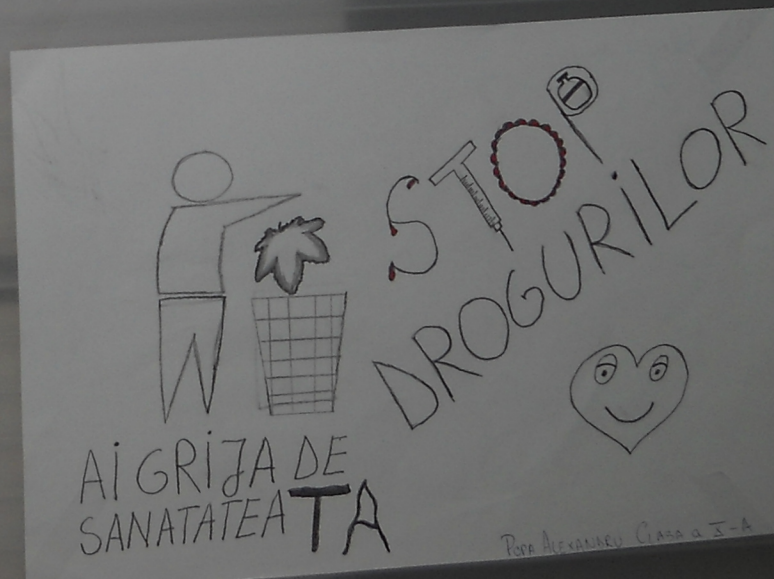 STOP
DROGURILOR
Ai GRiJA DE
SANATATEA TA
POPA ALEXANDRU CLASA a X-A